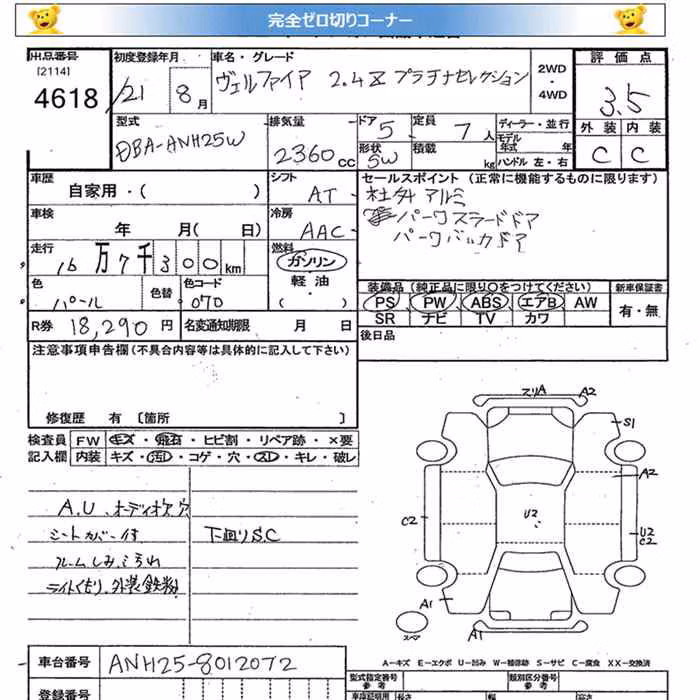 完全ゼロ切りコーナー
出品番号 初度登録年月 車名・グレード 評価点
[2114]
4618 /21 8月 ヴェルファイア 2.4Z プラチナセレクション 2WD・4WD 3.5
型式 排気量 ドア 5 定員 7人 ディーラー・並行 外装 内装
DBA-ANH25W 2360cc 形状 5W 積載 kg モデル年式 年 C C
ハンドル 左・右
車歴 シフト セールスポイント (正常に機能するものに限ります)
自家用・( ) AT 社外アルミ
車検 冷房 パーワスラードドア
年 月( 日) AAC パーワバックドア
走行 16万7千300km 燃料 ガソリン
軽油
( )
色 パール 色替 色コード 070
装備品 (純正品に限り○をつけてください) 新車保証書
PS PW ABS エアB AW 有・無
SR ナビ TV カワ
R券 18,290円 名変通知期限 月 日 後日品
注意事項申告欄 (不具合内容等は具体的に記入して下さい)
修復歴 有 〔箇所 〕
検査員 FW キズ・飛石・ヒビ割・リペア跡・×要
記入欄 内装 キズ・汚レ・コゲ・穴・スレ・キレ・破レ
A.U.オーディオケ穴
シートカバー付 下回りSC
ルームしみ、こうれ
ライトくもり、外装鉄粉
スリA A2
S1
A2
C2 U2 U2
C2
A1
スペア A1
A-キズ E-エクボ U-凹み W-補修跡 S-サビ C-腐食 XX-交換済
車台番号 ANH25-8012072
型式指定番号 類別区分番号
参考 参考
登録番号 車庫証明用 長さ 幅 高さ